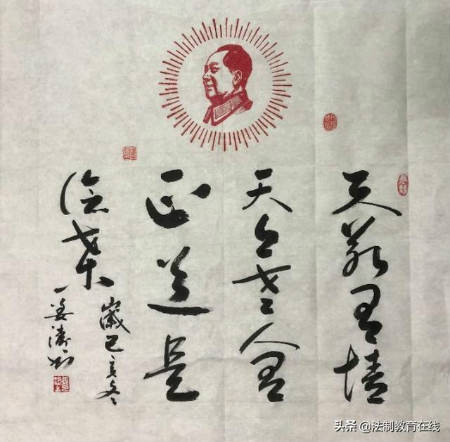 天若有情
天亦老人间
正道是
沧桑
歲己亥冬
姜涛书
头条 @法制教育在线